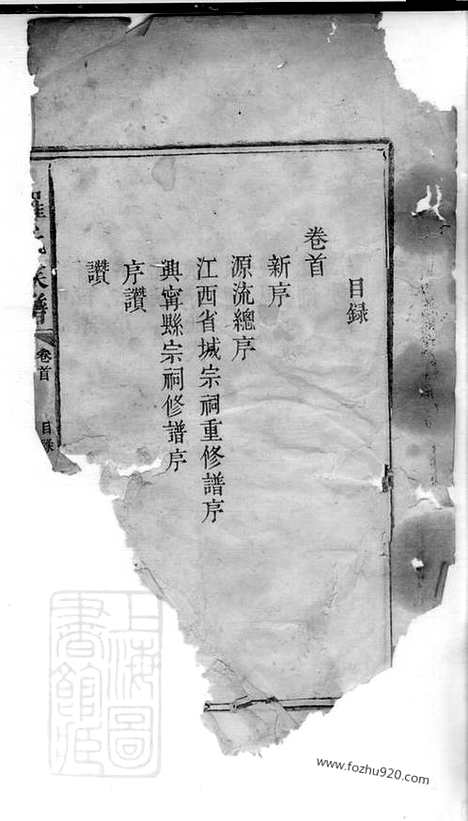 目録
卷首
新序
源流總序
江西省城宗祠重修譜序
興寧縣宗祠修譜序
序讚
讚
羅氏族譜
卷首
目録
上海圖書館藏
www.fozhu920.com